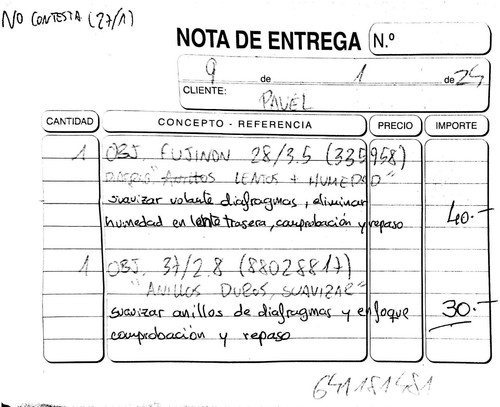 NO CONTESTA (27/1)
NOTA DE ENTREGA N.º
9 de 1 de 25
CLIENTE: PAVEL
CANTIDAD CONCEPTO - REFERENCIA PRECIO IMPORTE
1 OBJ. FUJINON 28/3.5 (335958)
LENTOS + HUMEDAD"
suavizar volante diafragmas, eliminar
humedad en lente trasera, comprobación y repaso 40.-
1 OBJ. 37/2.8 (88028817)
"ANILLOS DUROS, SUAVIZAR"
suavizar anillos de diafragmas y enfoque 30.-
comprobación y repaso
641181481